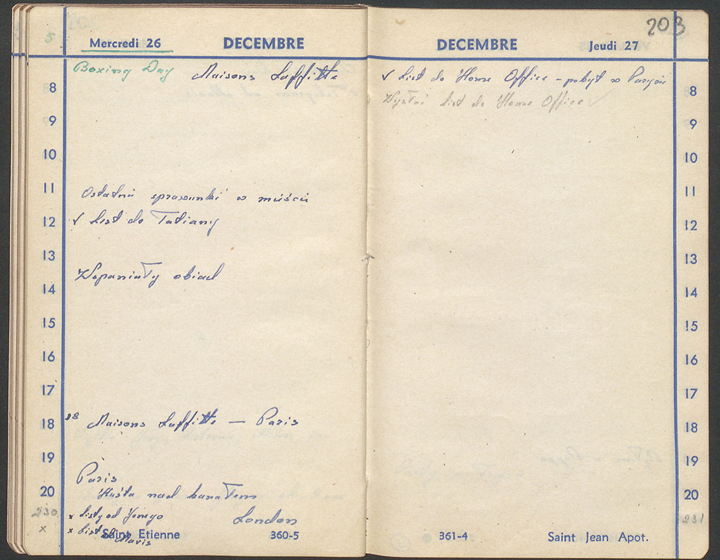 Mercredi 26 DECEMBRE
Boxing Day Maisons Laffitte
8
9
10
11 Ostatni w mieście
12 v List do Tatiany
13
Wspaniały obiad
14
15
16
17
18 Maisons Laffitte — Paris
19
Paris
20 nad
230 x listy od London
x List Maris
Saint Etienne 360-5
203
DECEMBRE Jeudi 27
v List do Home Office – pobyt w Paryżu 8
Wysłać list do Home Office v
9
10
11
12
13
14
15
16
17
18
19
20
231
361-4 Saint Jean Apot.